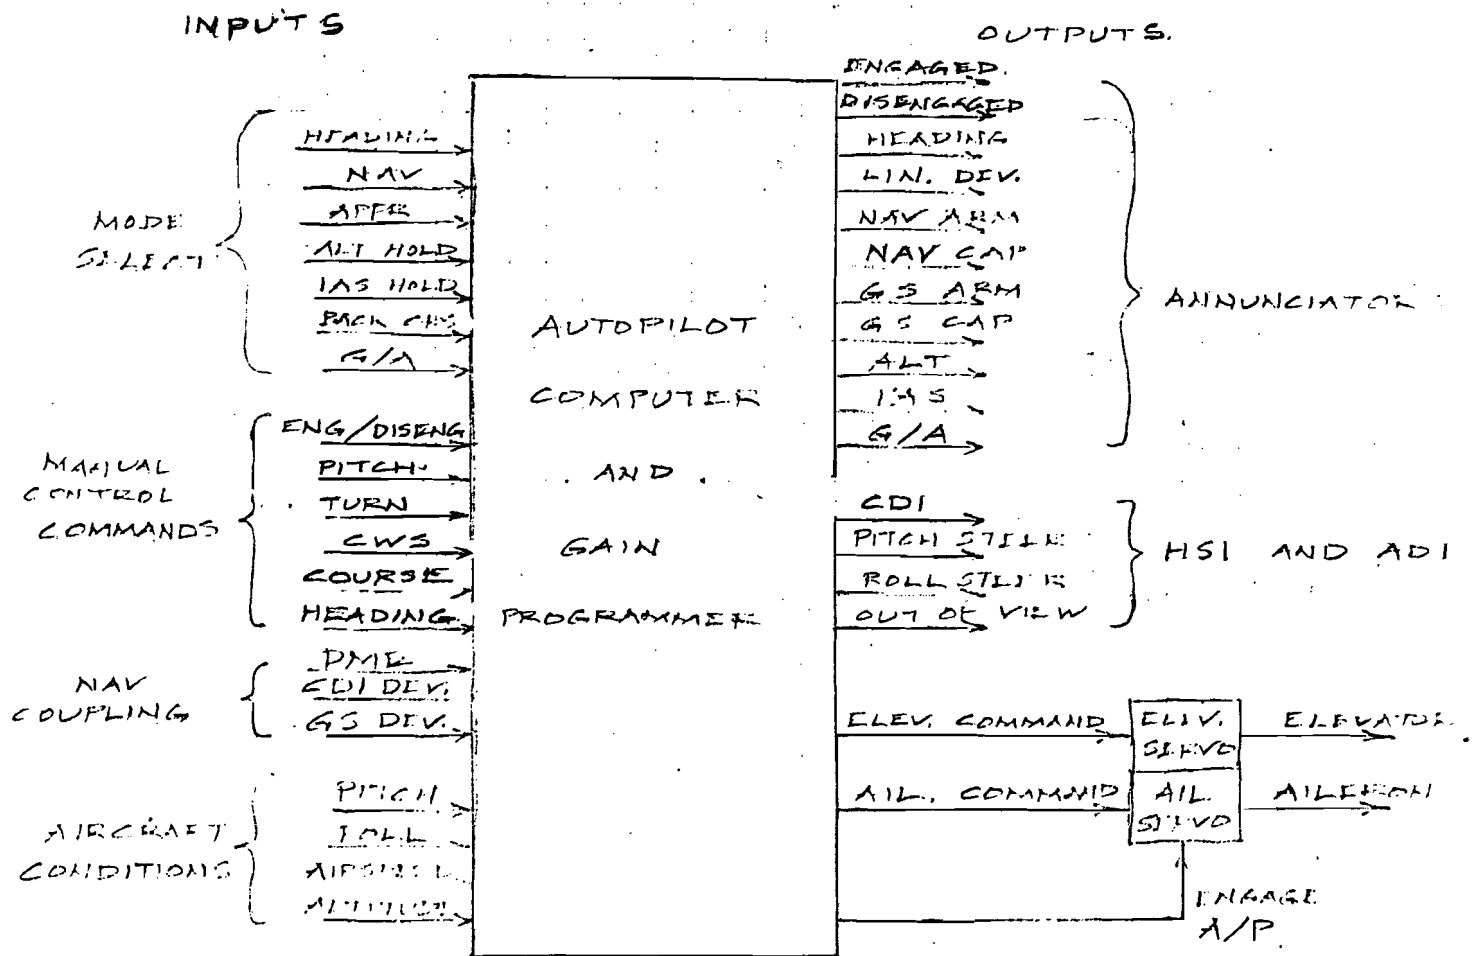 INPUTS
OUTPUTS.
MODE
SELECT
HEADING
NAV
APPR
ALT HOLD
IAS HOLD
BACK CRS
G/A
MANUAL
CONTROL
COMMANDS
ENG/DISENG
PITCH
TURN
CWS
COURSE
HEADING
NAV
COUPLING
DME
CDI DEV.
GS DEV.
AIRCRAFT
CONDITIONS
PITCH
ROLL
AIRSPEED
ALTITUDE
AUTOPILOT
COMPUTER
AND
GAIN
PROGRAMMER
ENGAGED.
DISENGAGED
HEADING
LIN. DEV.
NAV ARM
NAV CAP
GS ARM
GS CAP
ALT
IAS
G/A
ANNUNCIATOR
CDI
PITCH STEER
ROLL STEER
OUT OF VIEW
HSI AND ADI
ELEV. COMMAND
ELEV.
SERVO
ELEVATOR.
AIL. COMMAND
AIL.
SERVO
AILERON
ENGAGE
A/P.